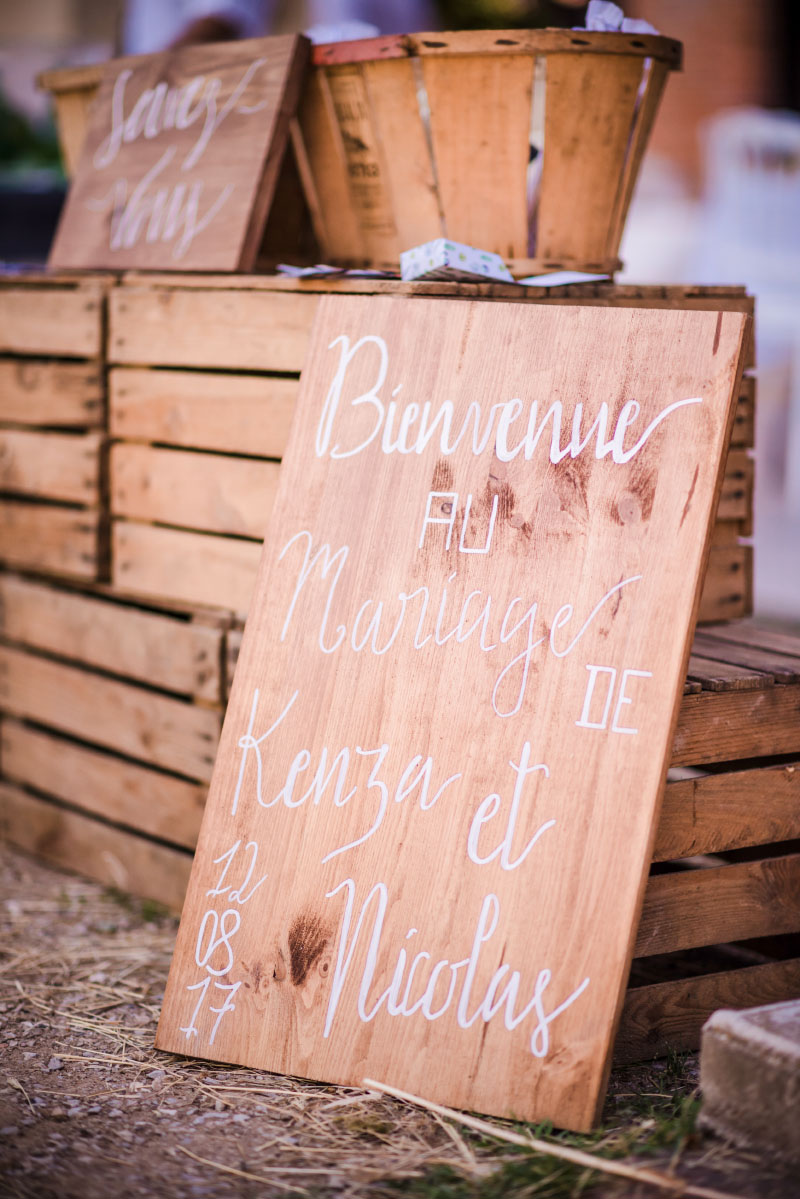 Servez
Vous
Bienvenue
AU
Mariage
DE
Kenza et
Nicolas
12
08
17